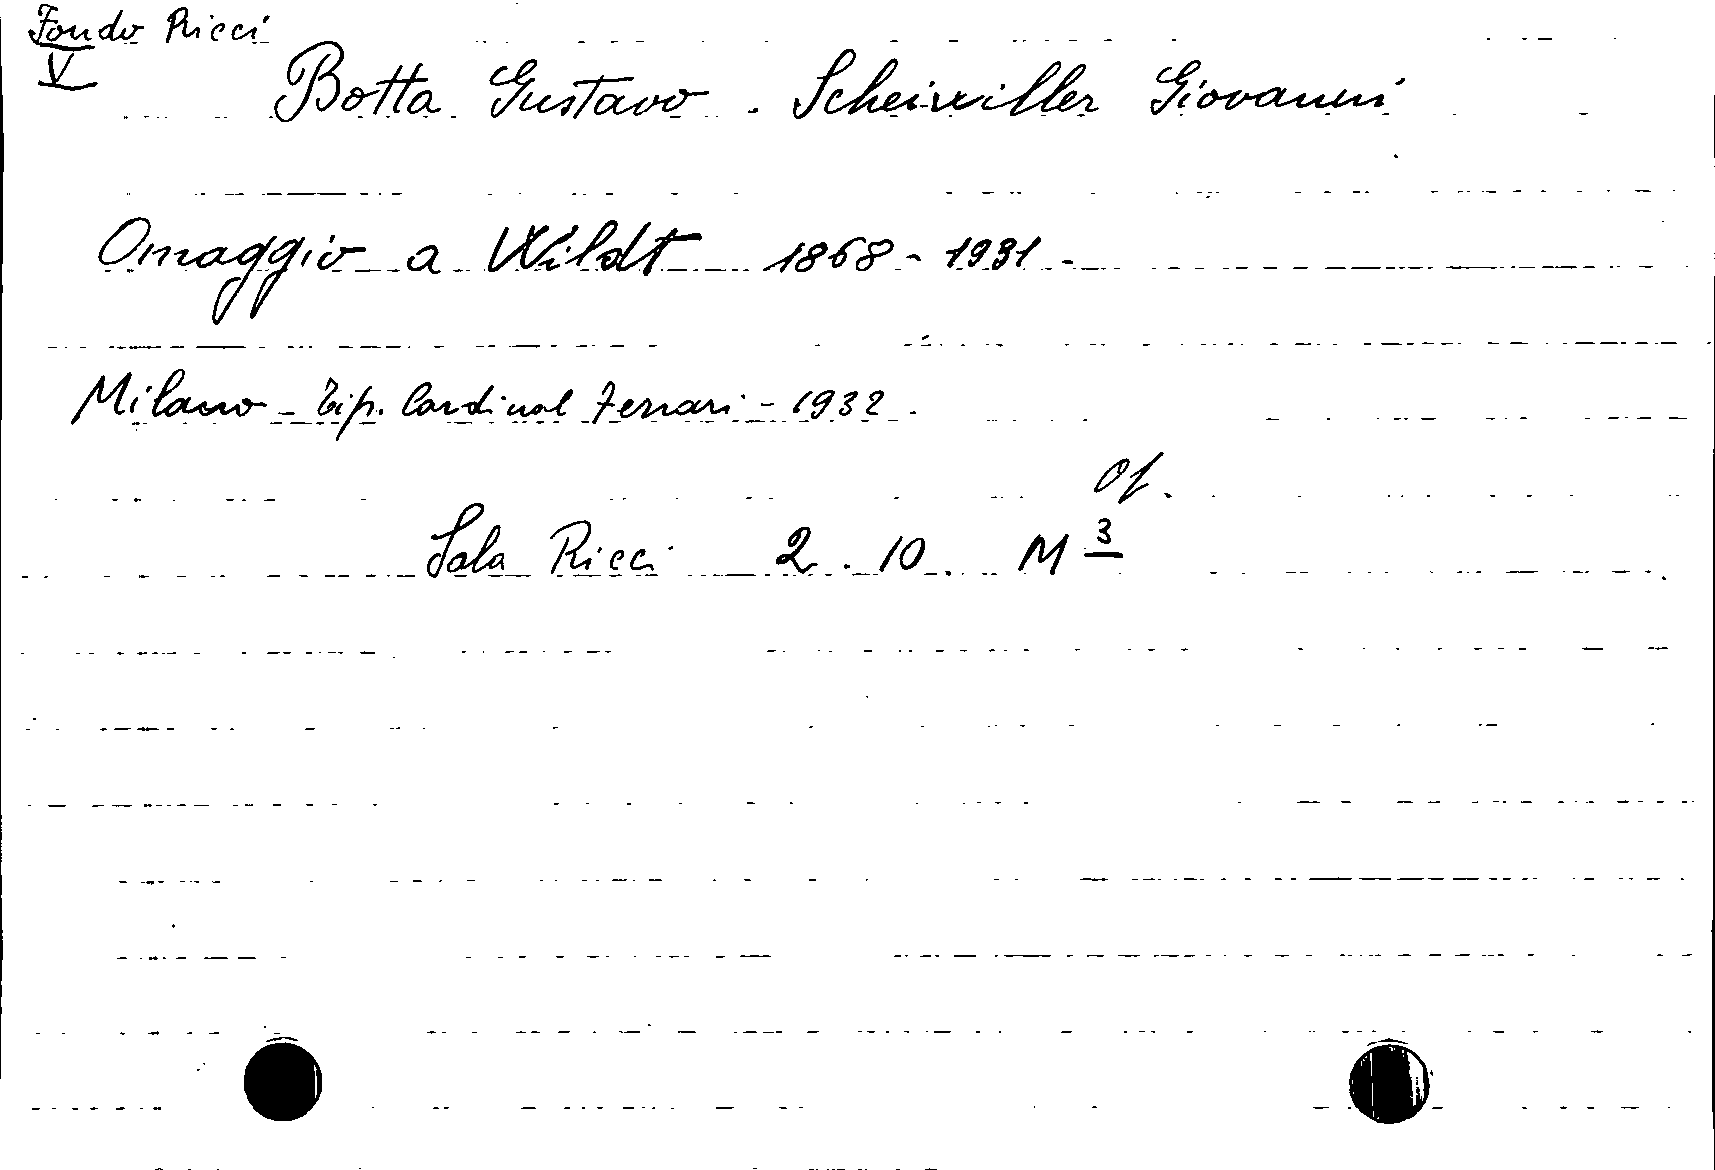 Fondo Ricci
V
Botta Gustavo. Scheiwiller Giovanni
Omaggio a Wildt 1868-1931-
Milano - Tip. Cardinal Ferrari - 1932.
Of.
Sala Ricci 2.10. M 3